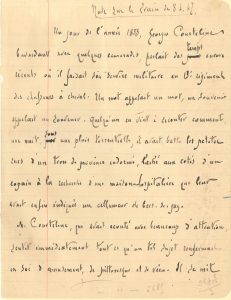 Note sur le Train du 8 h 47.
Un jour de l'année 1888, Georges Courteline
bavardant avec quelques camarades parlait des temps encore
récents où il faisait son service militaire en régiment
des chasseurs à cheval. Un mot appelant un mot, un souvenir
appelant un souvenir, quelqu'un en vint à raconter comment,
une nuit, sous une pluie torrentielle, il avait battu les petites
rues d'un trou de province endormi, aux côtés d'un
copain à la recherche d'une maison hospitalière que leur
avait enfin indiqué un allumeur de becs de gaz.
M. Courteline, qui avait écouté avec beaucoup d'attention,
sentit immédiatement tout ce qu'un tel sujet renfermait
en soi d'amusement, de pittoresque et de vécu. Il se mit